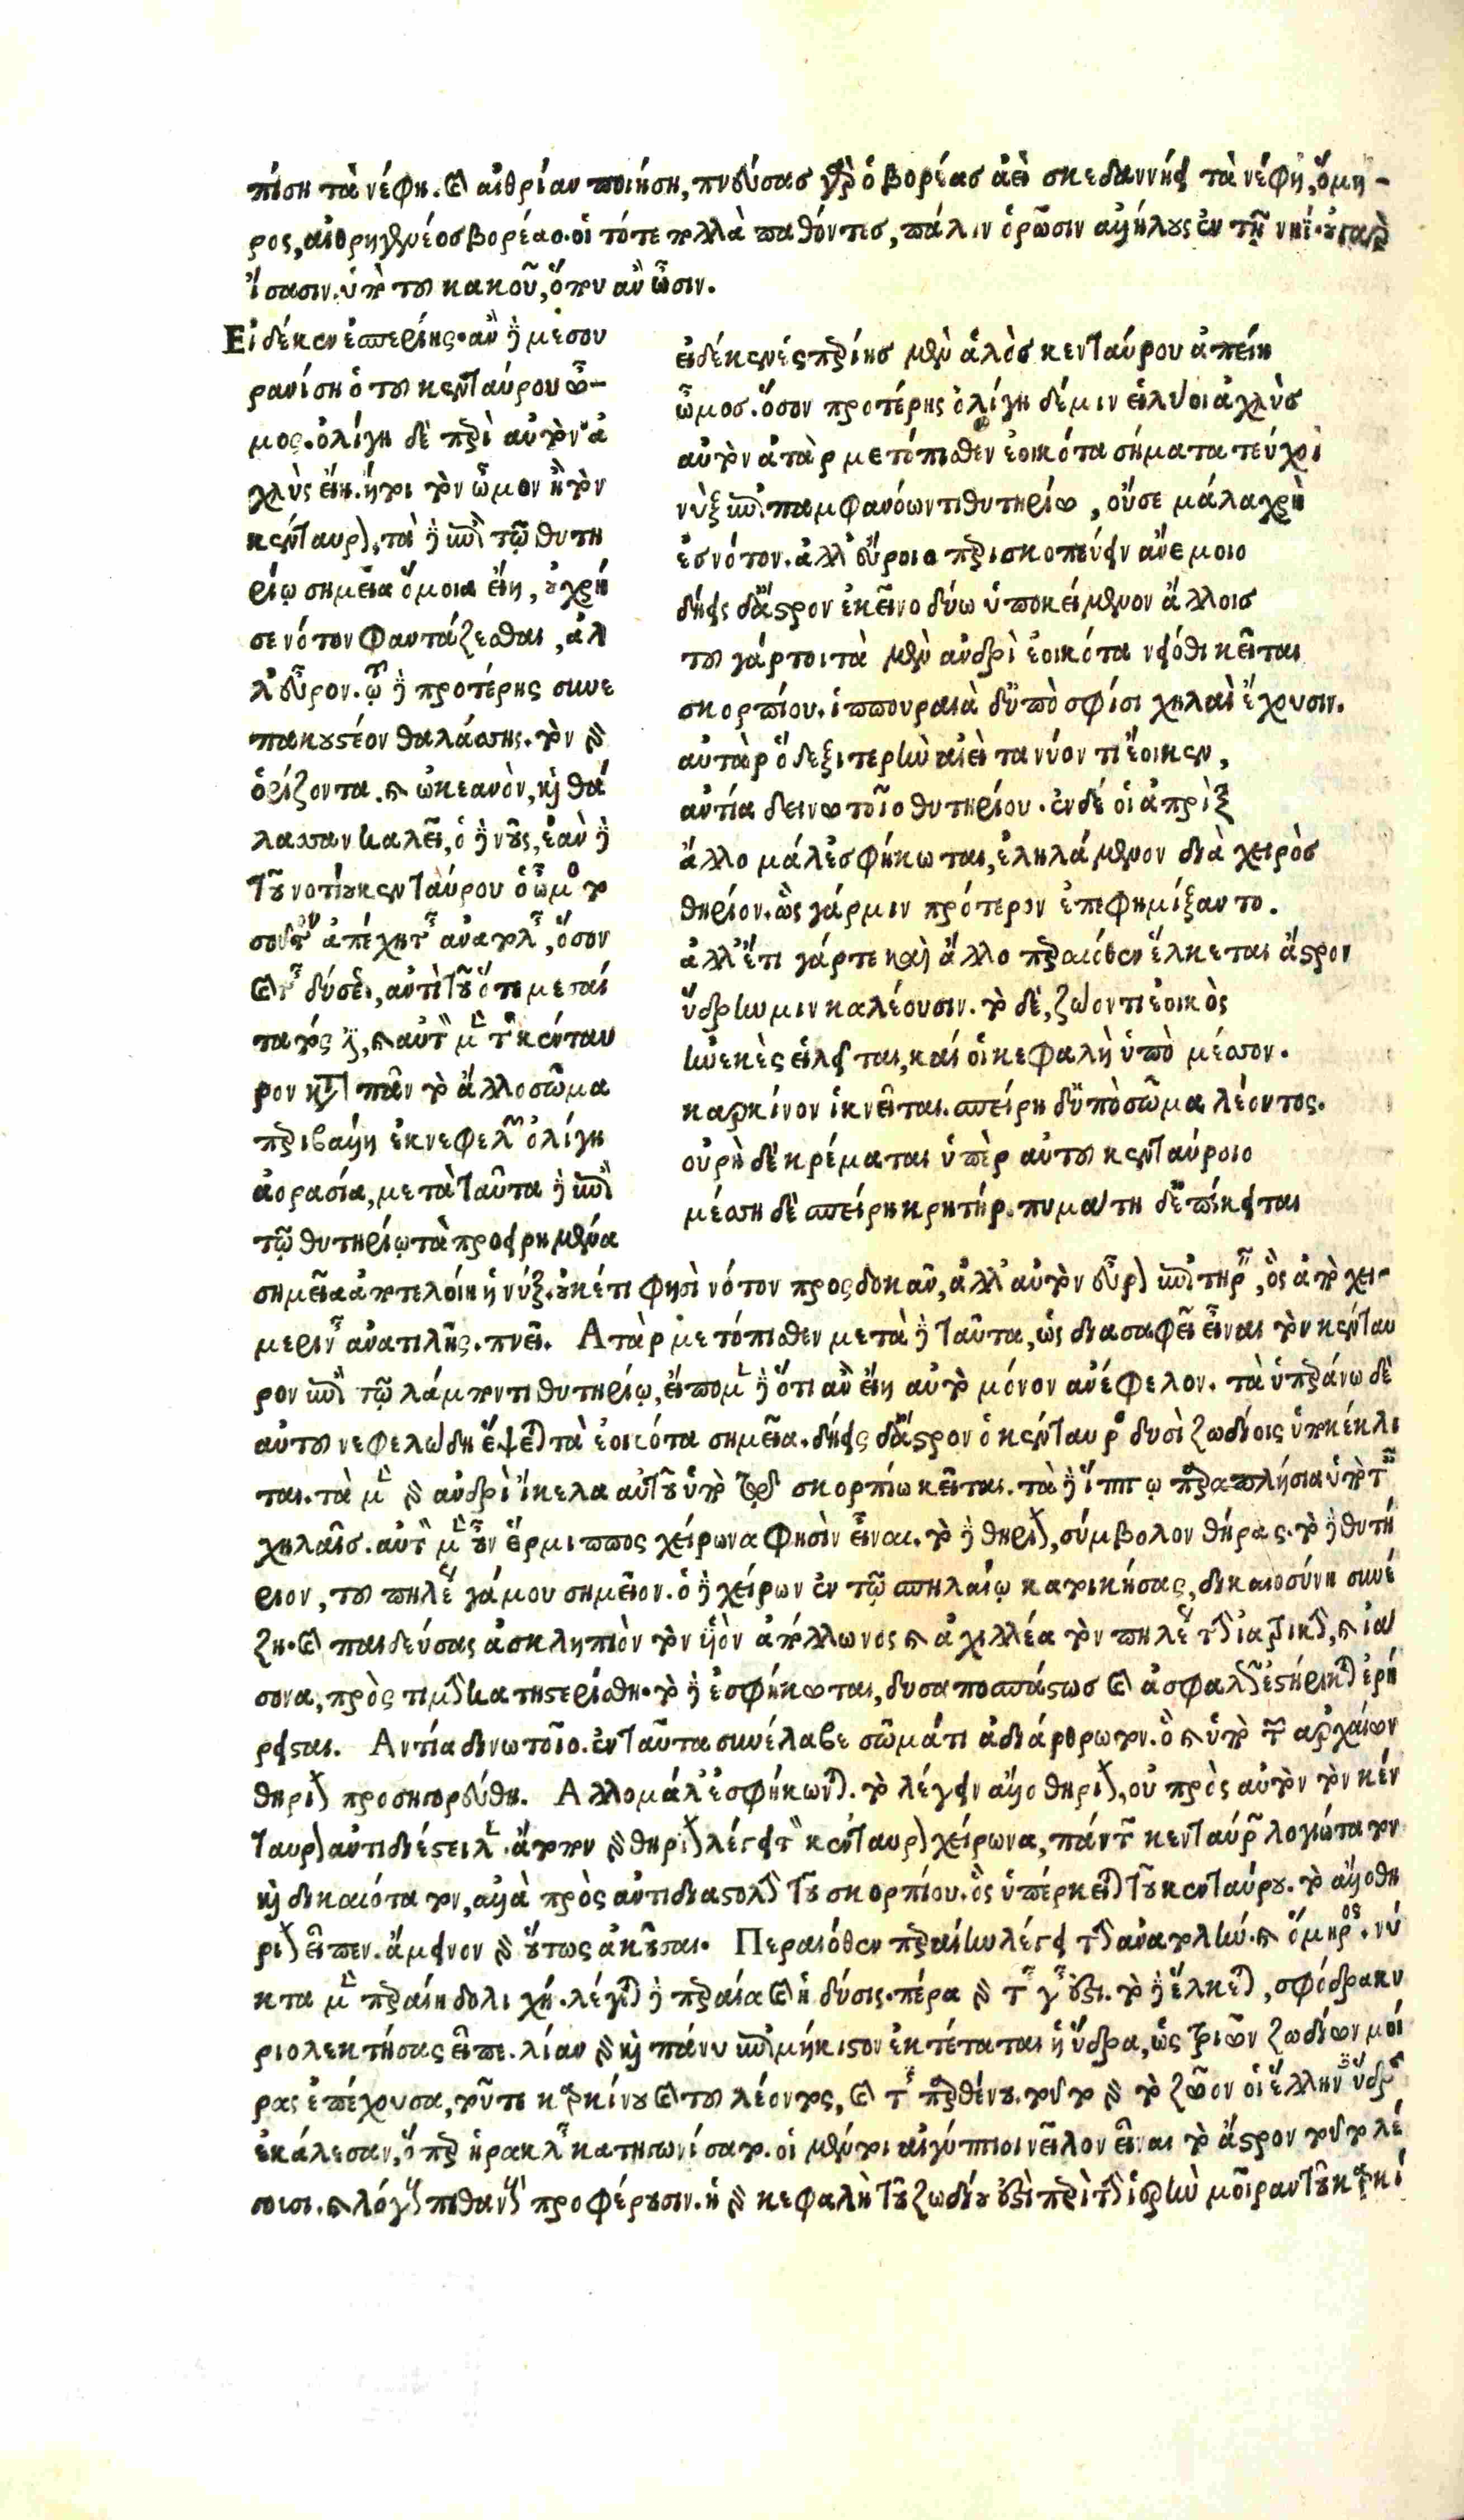 πίση τὰ νέφη. καὶ αἰθρίαν ποιήση, πνεύσας γὰρ ὁ βορέας ἀεὶ σκεδαννύει τὰ νέφη, ὅμη-
ρος, αἰθρηγενέος βορέαο. οἱ τότε πολλὰ παθόντες, πάλιν ὁρῶσιν ἀλλήλους ἐν τῇ νηί. οὐ γὰρ
ἴσασιν. ὑπὸ τοῦ κακοῦ, ὅπου ἂν ὦσιν.
Εἰ δέ κεν ἑσπερίης. ἂν δὲ μεσου
ρανίση ὁ τοῦ κενταύρου ὦ-
μος. ὀλίγη δὲ περὶ αὐτὸν ἀ
χλὺς εἴη. ἤτοι τὸν ὦμον ἢ τὸν
κένταυρον, τὰ δὲ ἐπὶ τῷ θυτη
ρίῳ σημεῖα ὅμοια εἴη, οὐ χρή
σε νότον φαντάζεσθαι, ἀλ
λ' εὖρον. τῷ δὲ προτέρης συνε
πακουστέον θαλάσσης. τὸν γὰρ
ὁρίζοντα. καὶ ὠκεανὸν, καὶ θά
λασσαν καλεῖ, ὁ δὲ νοῦς, ἐὰν δὲ
τοῦ νοτίου κενταύρου ὁ ὦμος το
σοῦτον ἀπέχη τῆς ἀνατολῆς, ὅσον
καὶ τῆς δύσεως, ἀντὶ τοῦ ὅτι μεσαί
τατός ἐστι, καὶ αὐτὸν μὲν τὸν κένταυ
ρον κατὰ πᾶν τὸ ἄλλο σῶμα
περιβάλλη ἐκ νεφελῶν ὀλίγη
ἀορασία, μετὰ ταῦτα δὲ ἐπὶ
τῷ θυτηρίῳ τὰ προειρημένα
εἰ δέ κεν ἑσπερίης μὲν ἁλὸς κενταύρου ἀπείη
ὦμος. ὅσον προτέρης ὀλίγη δέ μιν εἰλύοι ἀχλὺς
αὐτὸν ἀτὰρ μετόπισθεν ἐοικότα σήματα τεύχοι
νὺξ ἐπὶ παμφανόωντι θυτηρίῳ, οὔ σε μάλα χρὴ
ἐς νότον. ἀλλ' εὔροιο περισκοπεύειν ἀνέμοιο
δήεις δ' ἄστρον ἐκεῖνο δύω ὑποκείμενον ἄλλοις
τοῦ γάρ τοι τὰ μὲν ἀνδρὶ ἐοικότα νειόθι κεῖται
σκορπίου. ἱππουραιὰ δ' ὑπὸ σφίσι χηλαὶ ἔχουσιν.
αὐτὰρ ὃ δεξιτερὴν αἰεὶ τανύοντι ἔοικεν,
ἀντία δεινωτοῖο θυτηρίου. ἐν δέ οἱ ἀπρὶξ
ἄλλο μάλ' ἐσφήκωται, ἐληλάμενον διὰ χειρὸς
θηρίον. ὣς γάρ μιν πρότερον ἐπεφημίξαντο.
ἀλλ' ἔτι γάρ τε καὶ ἄλλο περαιόθεν ἕλκεται ἄστρον
ὕδρην μιν καλέουσιν. τὸ δὲ, ζώοντι ἐοικὸς
ἠνεκὲς εἰλεῖται, καί οἱ κεφαλὴ ὑπὸ μέσσον.
καρκίνον ἱκνεῖται. σπείρη δ' ὑπὸ σῶμα λέοντος.
οὐρὴ δὲ κρέμαται ὑπὲρ αὐτοῦ κενταύροιο
μέσση δὲ σπείρη κρητήρ. πυμάτη δ' ἐπίκειται
σημεῖα ἀποτελοίη ἡ νύξ. οὐκέτι φησὶ νότον προςδοκᾶν, ἀλλ' αὐτὸν εὖρον ἐπιτηρεῖν, ὃς ἀπὸ χει-
μερινῆς ἀνατολῆς. πνεῖ. Ἀτὰρ μετόπισθεν μετὰ δὲ ταῦτα, ὡς διασαφεῖ εἶναι τὸν κένταυ
ρον ἐπὶ τῷ λάμποντι θυτηρίῳ, εἴπομεν δὲ ὅτι ἂν εἴη αὐτὸ μόνον ἀνέφελον. τὰ ὑπεράνω δὲ
αὐτοῦ νεφελώδη ἕψεται τὰ ἐοικότα σημεῖα. δήεις δ' ἄστρον ὁ κένταυρος δυσὶ ζωδίοις ὑποκέκλι
ται. τὰ μὲν γὰρ ἀνδρὶ ἴκελα αὐτοῦ ὑπὸ τῷ σκορπίω κεῖται. τὰ δὲ ἵππῳ παραπλήσια ὑπὸ ταῖς
χηλαῖς. αὐτὸν μὲν οὖν ἕρμιππος χείρωνα φησὶν εἶναι. τὸ δὲ θηρίον, σύμβολον θήρας. τὸ δὲ θυτή
ριον, τοῦ πηλέως γάμου σημεῖον. ὁ δὲ χείρων ἐν τῷ σπηλαίῳ κατοικήσας, δικαιοσύνη συνέ
ζη. καὶ παιδεύσας ἀσκληπιὸν τὸν υἱὸν ἀπόλλωνος καὶ ἀχιλλέα τὸν πηλέως τὴν ἰατρικὴν, καὶ ἰά
σονα, πρὸς τιμὴν κατηστερίσθη. τὸ δὲ ἐσφήκωται, δυσαποσπάστως καὶ ἀσφαλῶς ἐστήρικται ἐρή
ρεισται. Ἀντία δινωτοῖο. ἐνταῦτα συνέλαβε σῶμά τι ἀδιάρθρωτον. ὃ καὶ ὑπὸ τῶν ἀρχαίων
θηρίον προσηγορεύθη. Ἄλλο μάλ' ἐσφήκωνται. τὸ λέγειν ἄλλο θηρίον, οὐ πρὸς αὐτὸν τὸν κέν
ταυρον ἀντιδιέστειλεν. ἄτοπον γὰρ θηρίον λέγει τὸν κένταυρον χείρωνα, πάντων κενταύρων λογιώτατον
καὶ δικαιότατον, ἀλλὰ πρὸς ἀντιδιαστολὴν τοῦ σκορπίου. ὃς ὑπέρκειται τοῦ κενταύρου. τὸ ἄλλο θη
ρίον εἶπεν. ἄμεινον γὰρ οὕτως ἀκοῦσαι. Περαιόθεν περαίην λέγει τὴν ἀνατολήν. καὶ ὅμηρος. νύ
κτα μὲν περαίη δολιχή. λέγεται δὲ περαία καὶ ἡ δύσις. πέρα γὰρ τῆς γῆς ἐστι. τὸ δὲ ἕλκεται, σφόδρα κυ
ριολεκτήσας εἶπε. λίαν γὰρ καὶ πάνυ ἐπιμήκιστον ἐκτέταται ἡ ὕδρα, ὡς τριῶν ζωδίων μοί
ρας ἐπέχουσα, τοῦτε καρκίνου καὶ τοῦ λέοντος, καὶ τῆς παρθένου. τοῦτο γὰρ τὸ ζῶον οἱ ἕλληνες ὕδραν
ἐκάλεσαν, ὅπερ ἡρακλῆς κατηγωνίσατο. οἱ μέντοι αἰγύπτιοι νεῖλον εἶναι τὸ ἄστρον τοῦτο λέ
γουσι. καὶ λόγους πιθανοὺς προφέρουσιν. ἡ γὰρ κεφαλὴ τοῦ ζωδίου ἐστὶ περὶ τὴν ὑστέρην μοῖραν τοῦ καρκί